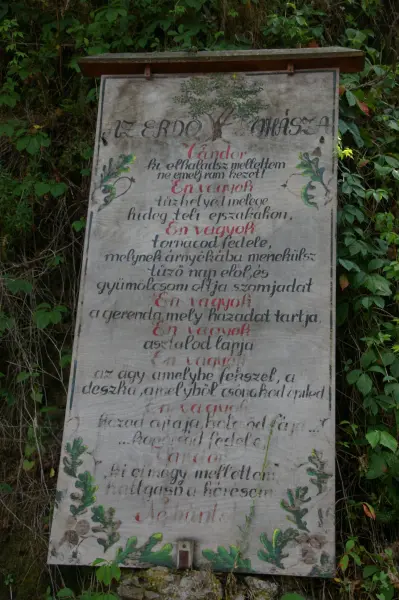 AZ ERDŐ IMÁSZA
Vándor
ki elhaladsz mellettem
ne emelj rám kezet!
Én vagyok
tűzhelyed melege
hideg téli éjszakákon,
Én vagyok
tornácod fedele,
melynek árnyékába menekülsz
tűző nap elől, és
gyümölcsöm oltja szomjadat
Én vagyok
a gerenda, mely házadat tartja,
Én vagyok
asztalod lapja
Én vagyok
az ágy amelybe fekszel, a
deszka, amelyből csónakod építed
Én vagyok
házad ajtaja,
...koporsód fedele,
Vándor
ki elmégy mellettem
hallgasd a kérésem
Ne bánts!